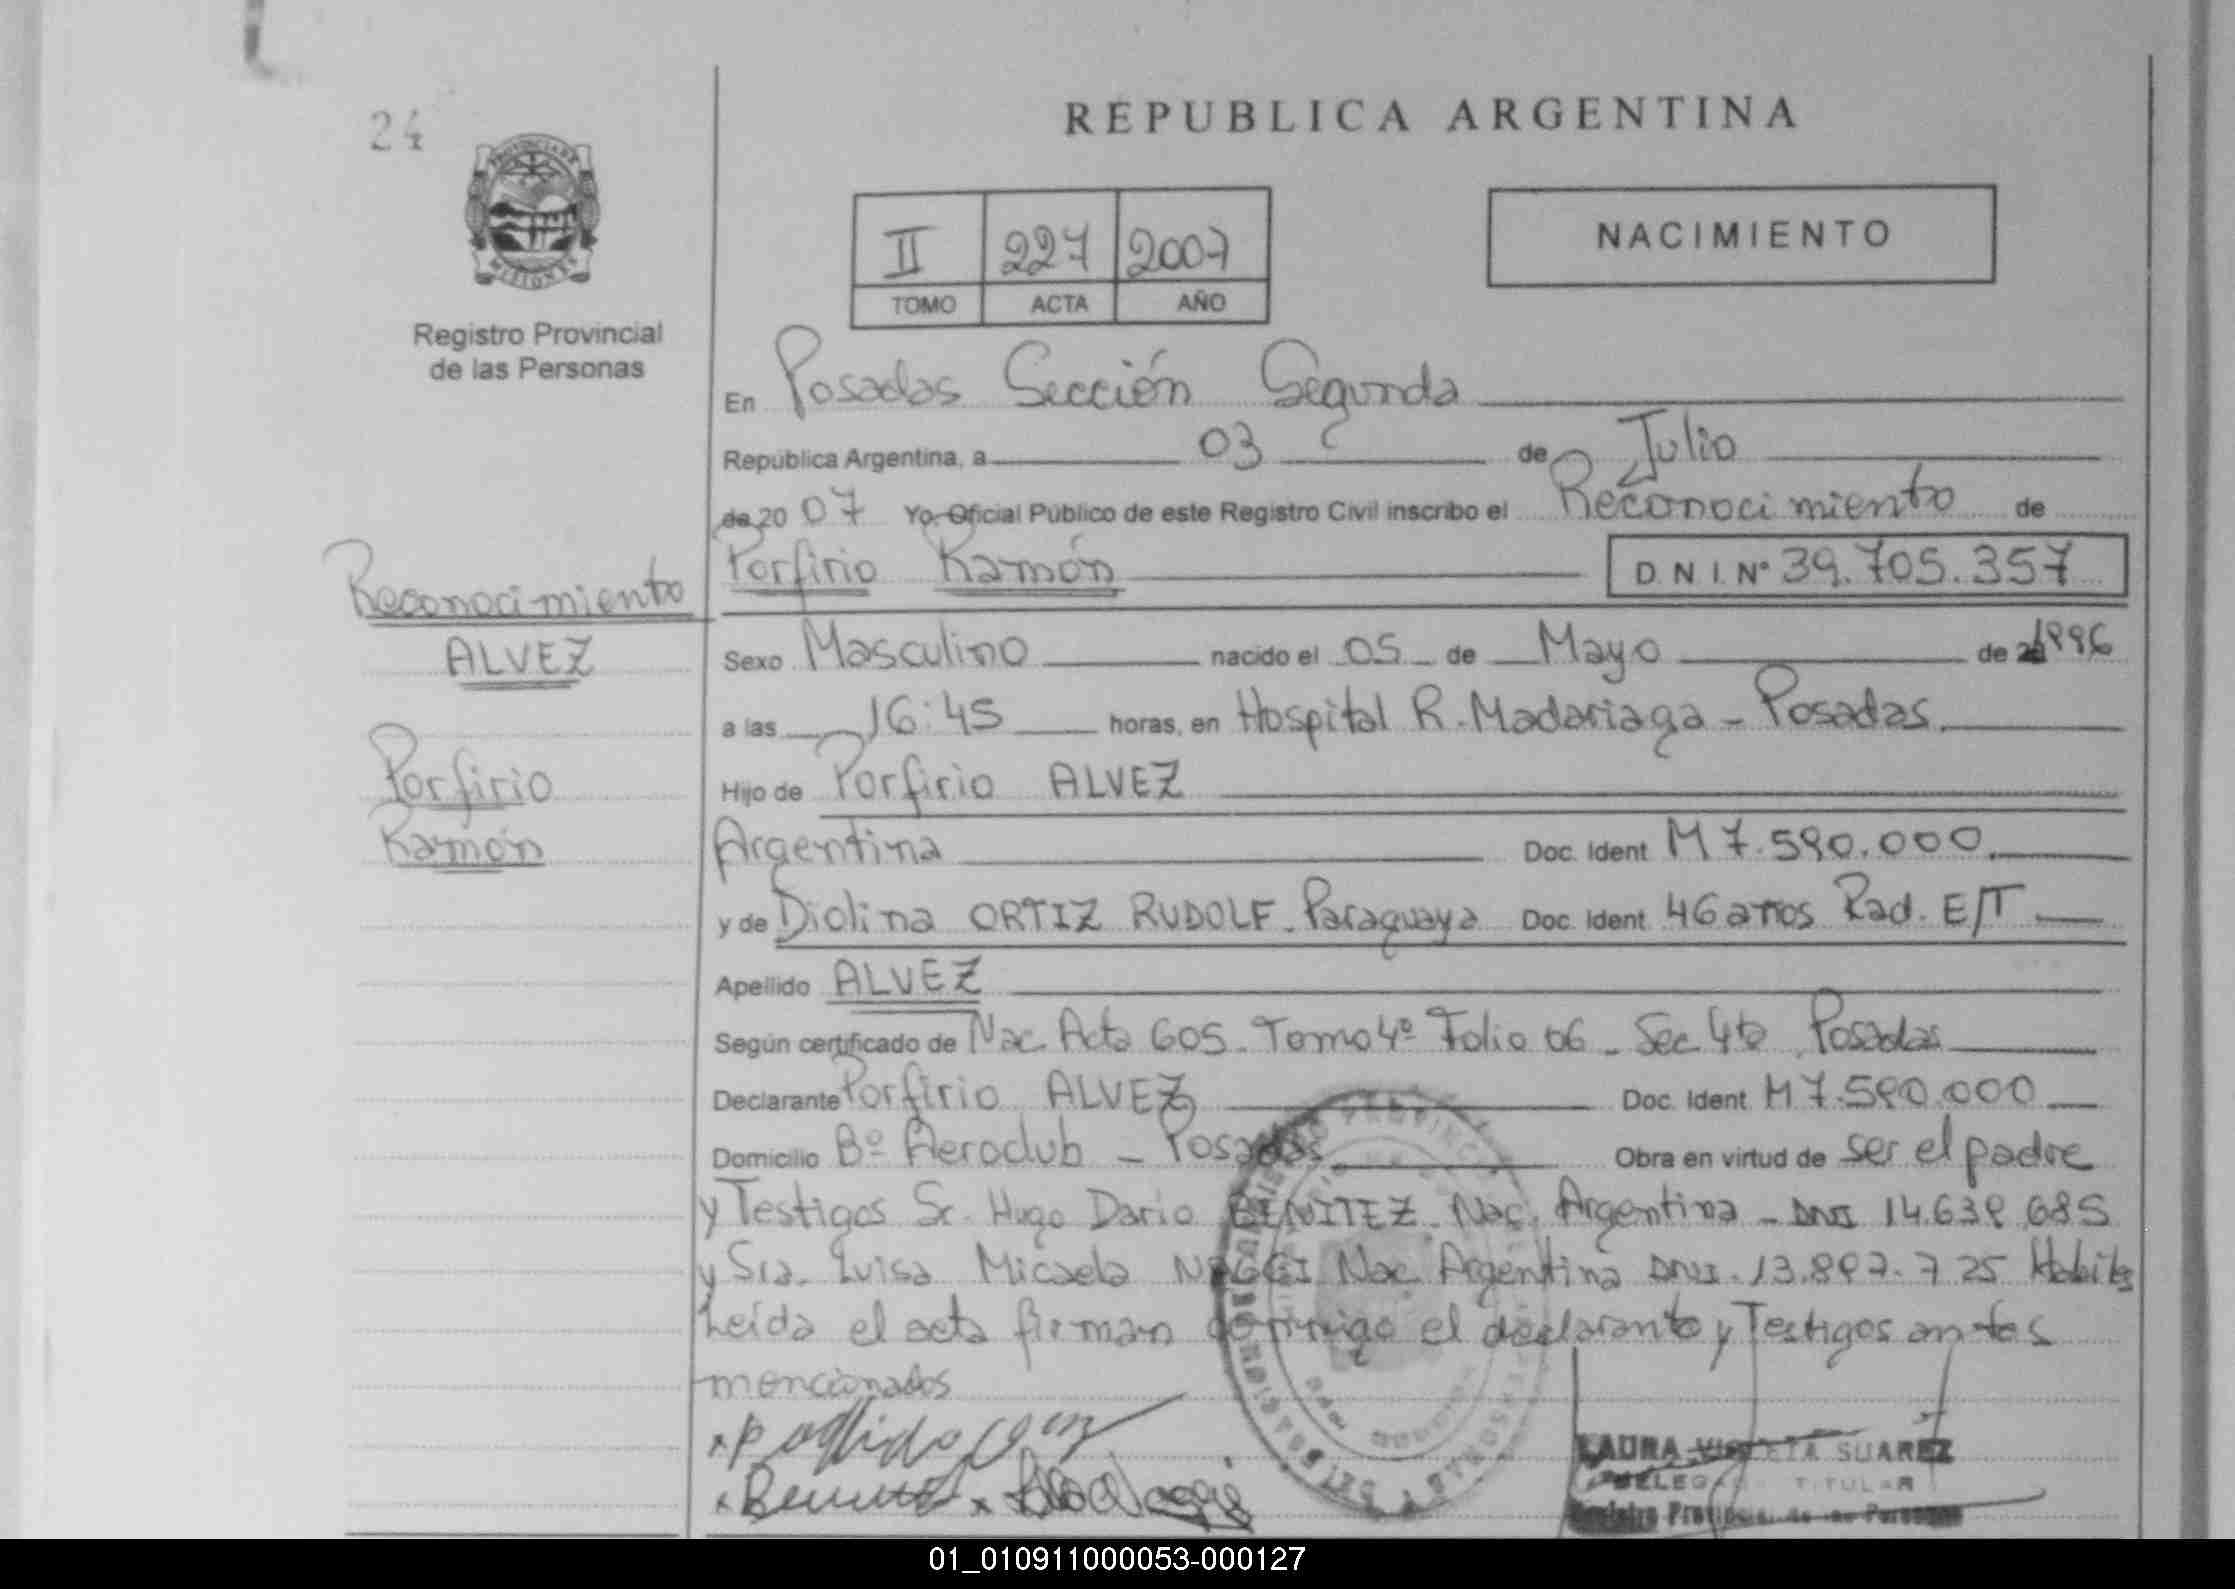 24
REPUBLICA ARGENTINA
PROVINCIA DE
MISIONES
Registro Provincial
de las Personas
II 227 2007
TOMO ACTA AÑO
NACIMIENTO
En Posadas Sección Segunda
República Argentina, a 03 de Julio
de 20 07 Yo, Oficial Público de este Registro Civil inscribo el Reconocimiento de
Porfirio Ramón D N I. Nº 39.705.357
Reconocimiento
ALVEZ
Porfirio
Ramón
Sexo Masculino nacido el 05 de Mayo de 1996
a las 16:45 horas, en Hospital R. Madariaga - Posadas
Hijo de Porfirio ALVEZ
Argentina Doc. Ident M 7.590.000
y de Diolina ORTIZ RUDOLF. Paraguaya Doc. Ident 46 años Rad. E/T
Apellido ALVEZ
Según certificado de Nac. Acta 605. Tomo 4º Folio 06 - Sec 4ta Posadas
Declarante Porfirio ALVEZ Doc. Ident M 7.590.000
Domicilio Bº Aeroclub - Posadas Obra en virtud de ser el padre
y Testigos Sr. Hugo Dario BENITEZ. Nac. Argentina - DNI 14.639.685
y Sra. Luisa Micaela Nac Argentina DNI. 13.897.725 Habiles
Leída el acta firman conmigo el declarante y Testigos antes
mencionados
LAURA VIOLETA SUAREZ
DELEGADA TITULAR
Registro Provincial de las Personas
01_010911000053-000127